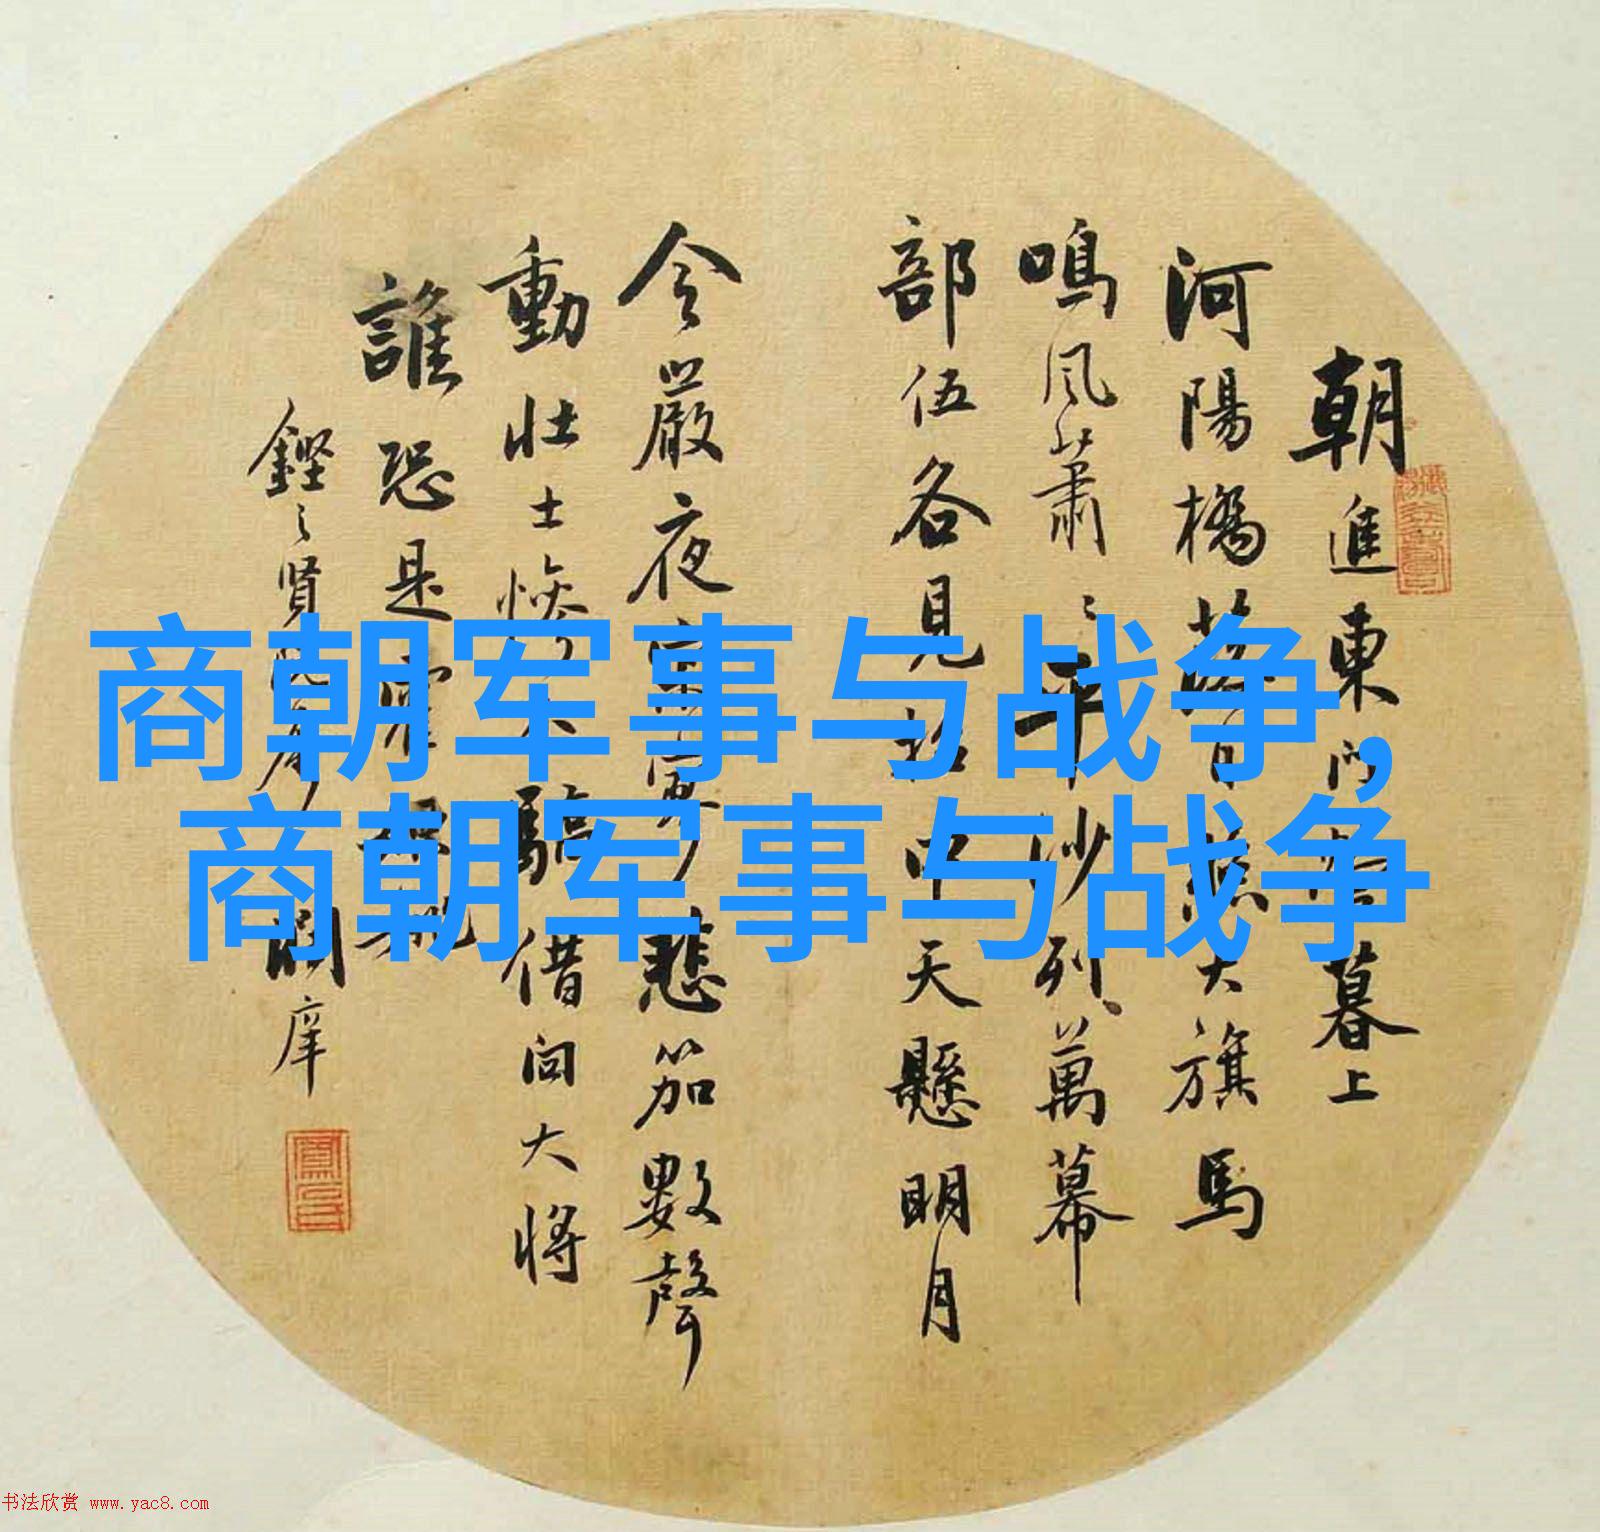 商朝军事与战争,
商朝军事与战争
朝進東門營暮上
河陽橋落日照大旗馬
鳴風蕭〻平沙列萬幕
部伍各見招中天懸明月
令嚴夜寂寥悲笳數聲
動壯士慘不驕借问大將
誰恐是霍
鏗〻賢庠
书法欣赏 www.yac8.com